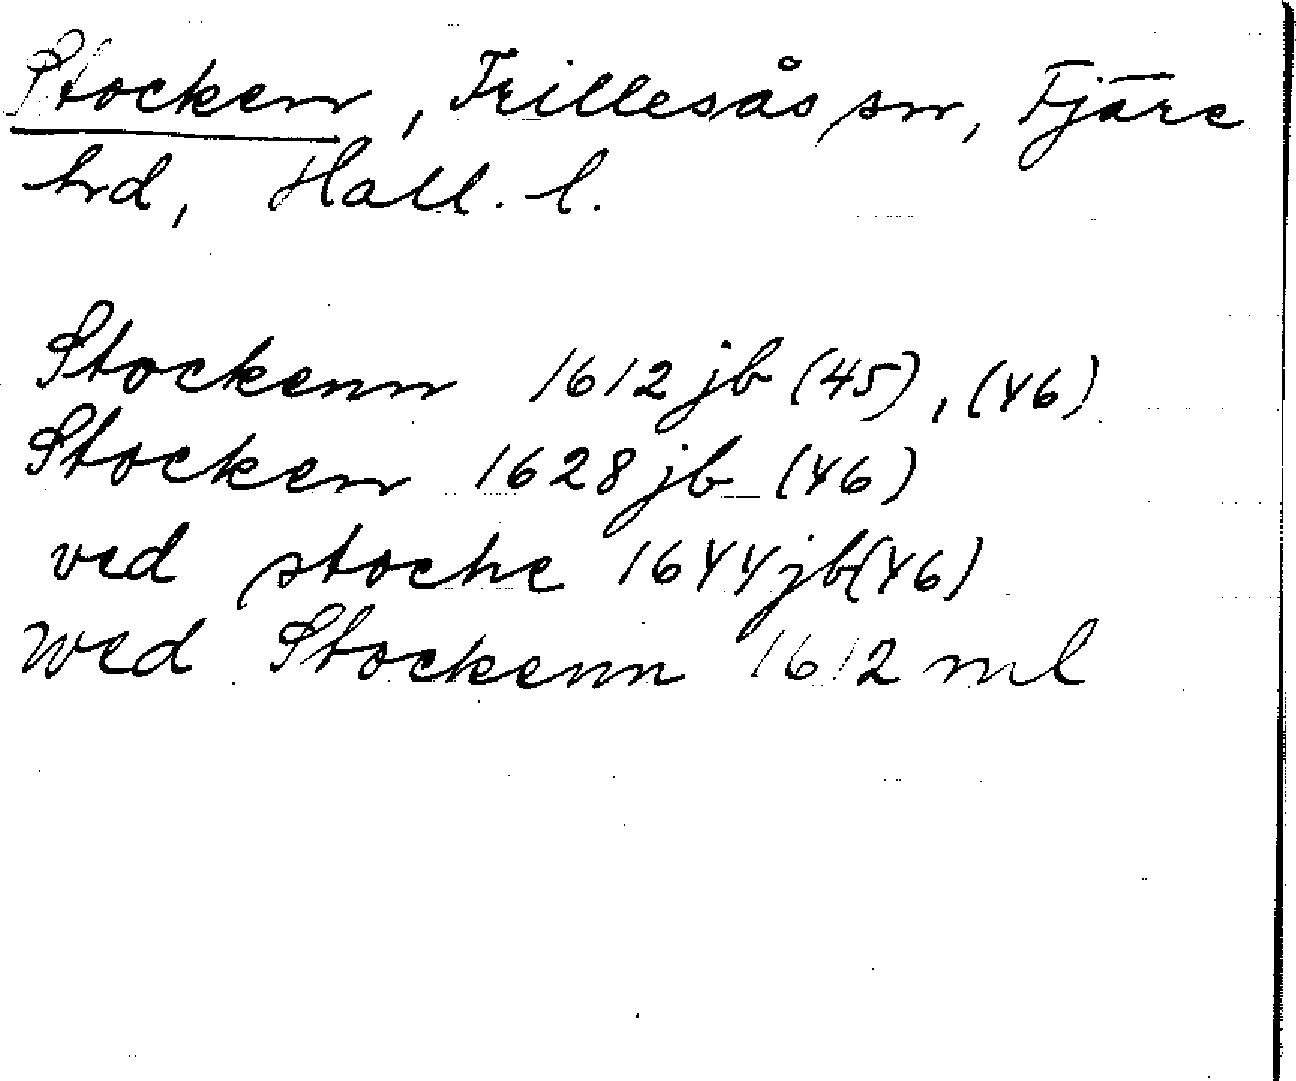 Stocken, Frillesås sn, Fjäre
hd, Hall. l.
Stockenn 1612 jb (45), (46)
Stocken 1628 jb (46)
ved stocke 1644 jb (46)
Wed Stockenn 1612 ml